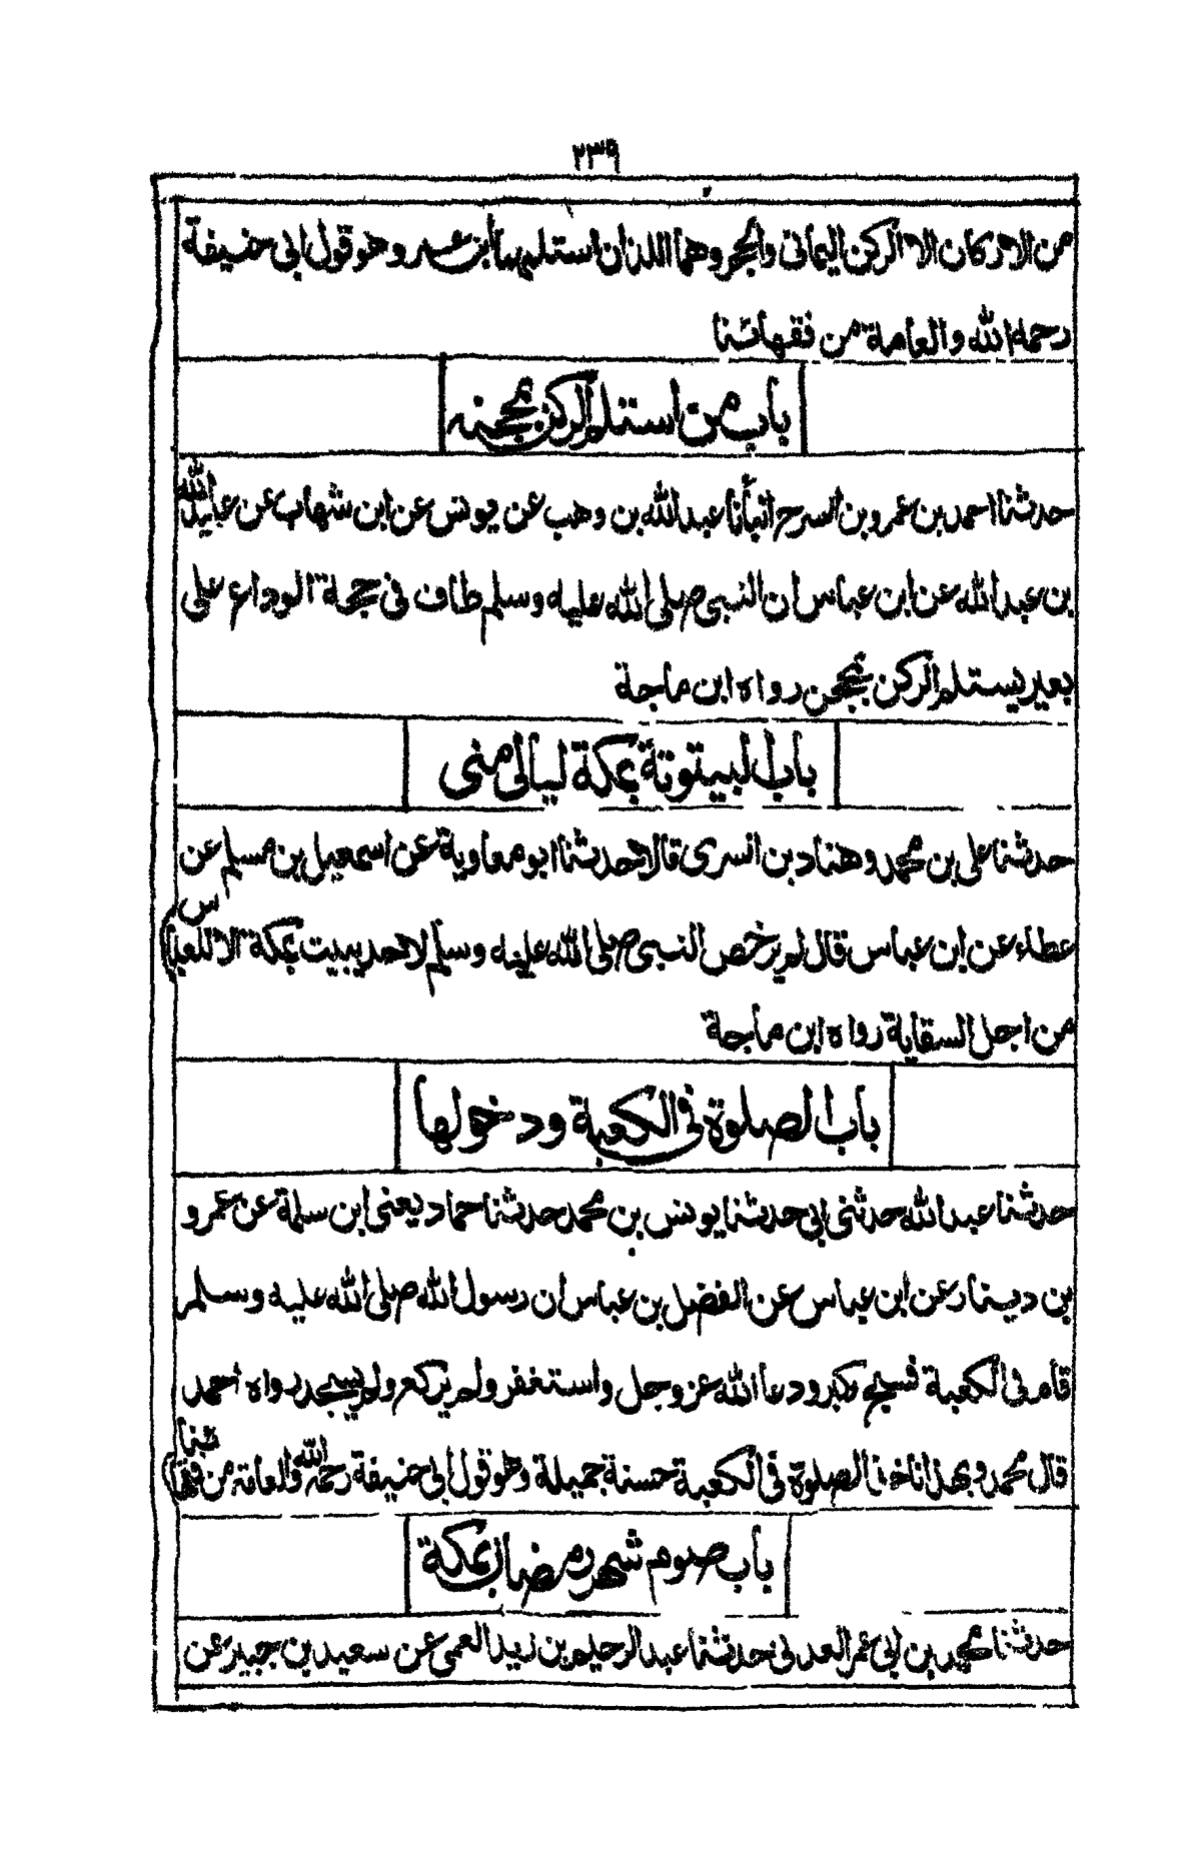 ٢٣٩
من الاركان الا الركن اليمانى والحجر وهما اللذان استلمهما ابن عمر وهو قول ابى حنيفة
رحمه الله والعامة من فقهائنا
باب من استلم الركن بمحجنه
حدثنا احمد بن عمرو بن السرح انبأنا عبد الله بن وهب عن يونس عن ابن شهاب عن عبيد الله
بن عبد الله عن ابن عباس ان النبى صلى الله عليه وسلم طاف فى حجة الوداع على
بعير يستلم الركن بمحجن رواه ابن ماجة
باب البيتوتة بمكة ليالى منى
حدثنا على بن محمد وهناد بن السرى قالا حدثنا ابو معاوية عن اسمعيل بن مسلم عن
عطاء عن ابن عباس قال لم يرخص النبى صلى الله عليه وسلم لاحد يبيت بمكة الا للعباس
من اجل السقاية رواه ابن ماجة
باب الصلوة فى الكعبة ودخولها
حدثنا عبد الله حدثنى ابى حدثنا يونس بن محمد حدثنا حماد يعنى ابن سلمة عن عمرو
بن دينار عن ابن عباس عن الفضل بن عباس ان رسول الله صلى الله عليه وسلم
قام فى الكعبة فسبح وكبر ودعا الله عز وجل واستغفر ولم يركع ولم يسجد رواه احمد
قال محمد وبهذا ناخذ الصلوة فى الكعبة حسنة جميلة وهو قول ابى حنيفة رحمه الله والعامة من فقهائنا
باب صوم شهر رمضان بمكة
حدثنا محمد بن ابى عمر العدنى حدثنا عبد الرحيم بن زيد العمى عن سعيد بن جبير عن